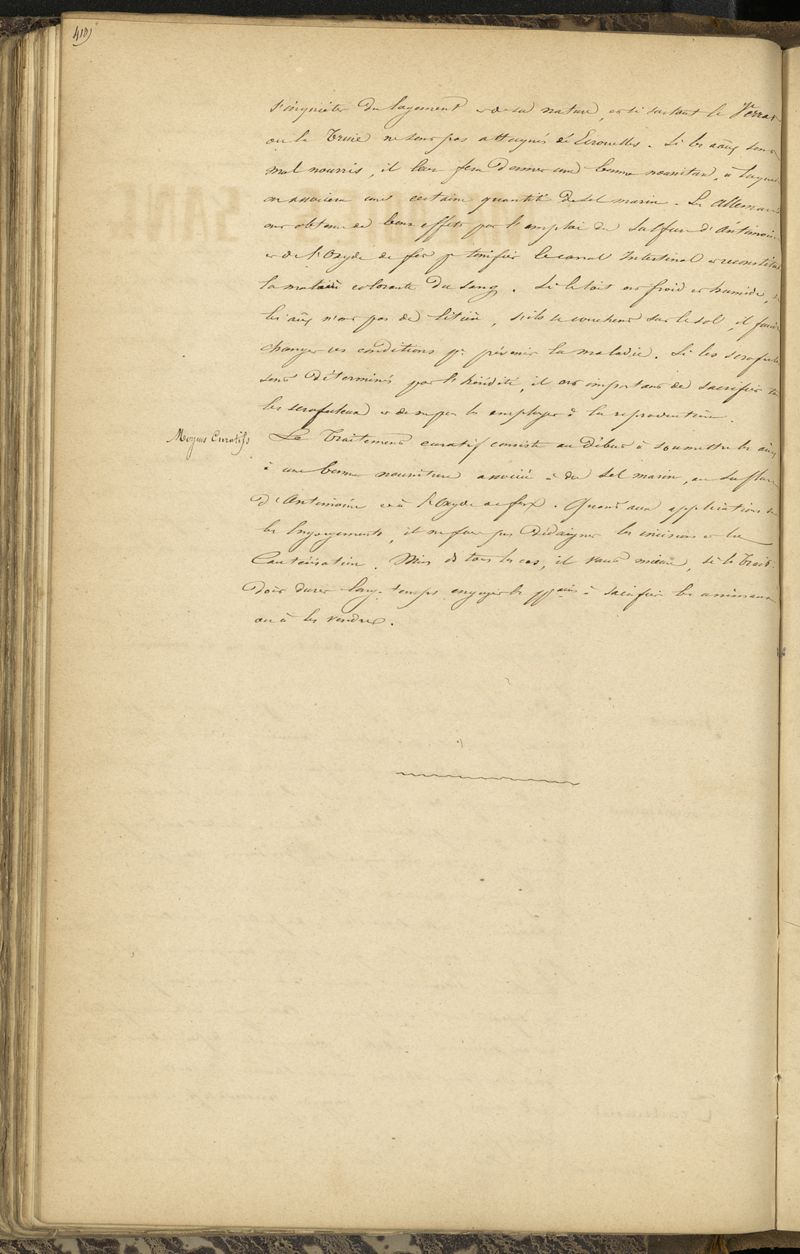 410)
s'inquiéter du logement et de sa nature, et si surtout le Verrat
ou la Truie ne sont pas attaqués d'Ecrouelles. Si les aaux sont
mal nourris, il leur fera donner une bonne nourriture, à laquelle
on associera une certaine quantité de sel marin. Les Allemands
ont obtenu de bons effets par l'emploi du Sulfure d'Antimoine
et de l'Oxyde de fer pr tonifier le canal Intestinal et reconstituer
la matière colorante du sang. Si le toit est froid et humide, si
les aaux n'ont pas de litière, s'ils se couchent sur le sol, il faut
changer ces conditions pr prévenir la maladie. Si les scrofules
sont déterminés par l'hérédité, il est important de sacrifier
les scrofuleux et de ne pas les employer à la reproduction.
Moyens Curatifs. Le Traitement curatif consiste au début à soumettre les aaux
à une bonne nourriture associée à du sel marin, au sulfure
d'Antimoine et à l'Oxyde de fer. Quant aux applications
les Engorgements, il ne faut pas dédaigner les incisions et la
Cautérisation. Mais ds tous les cas, il vaut mieux, si le Trait
doit durer long-temps engager les ppaires à sacrifier les animaux
ou à les vendre.
SANE